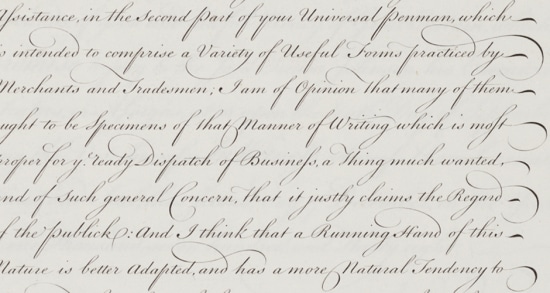 Assistance, in the Second part of your Universal Penman, which
is intended to comprise a Variety of Useful Forms practiced by
Merchants and Tradesmen; I am of Opinion that many of them
ought to be Specimens of that Manner of Writing which is most
proper for y.e ready Dispatch of Business, a Thing much wanted,
and of Such general Concern, that it justly claims the Regard
of the Publick: And I think that a Running Hand of this
Nature is better Adapted, and has a more Natural Tendency to